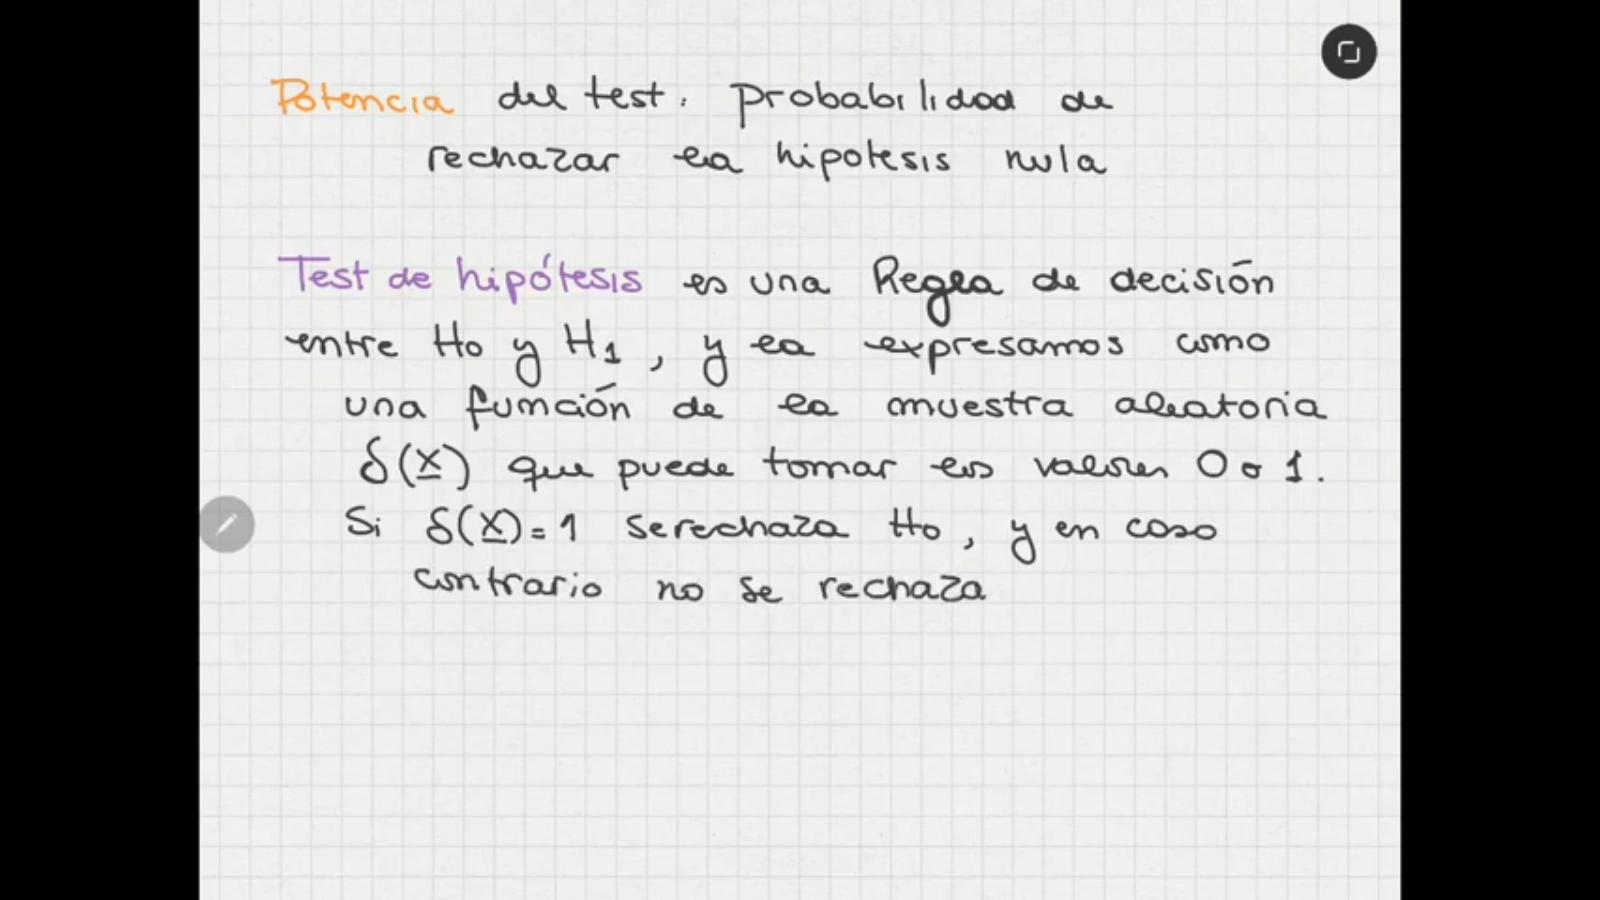 Potencia del test. Probabilidad de
rechazar la hipotesis nula
Test de hipótesis es una Regla de decisión
entre H0 y H1, y la expresamos como
una función de la muestra aleatoria
δ(X) que puede tomar los valores 0 o 1.
Si δ(X)=1 se rechaza H0, y en caso
contrario no se rechaza